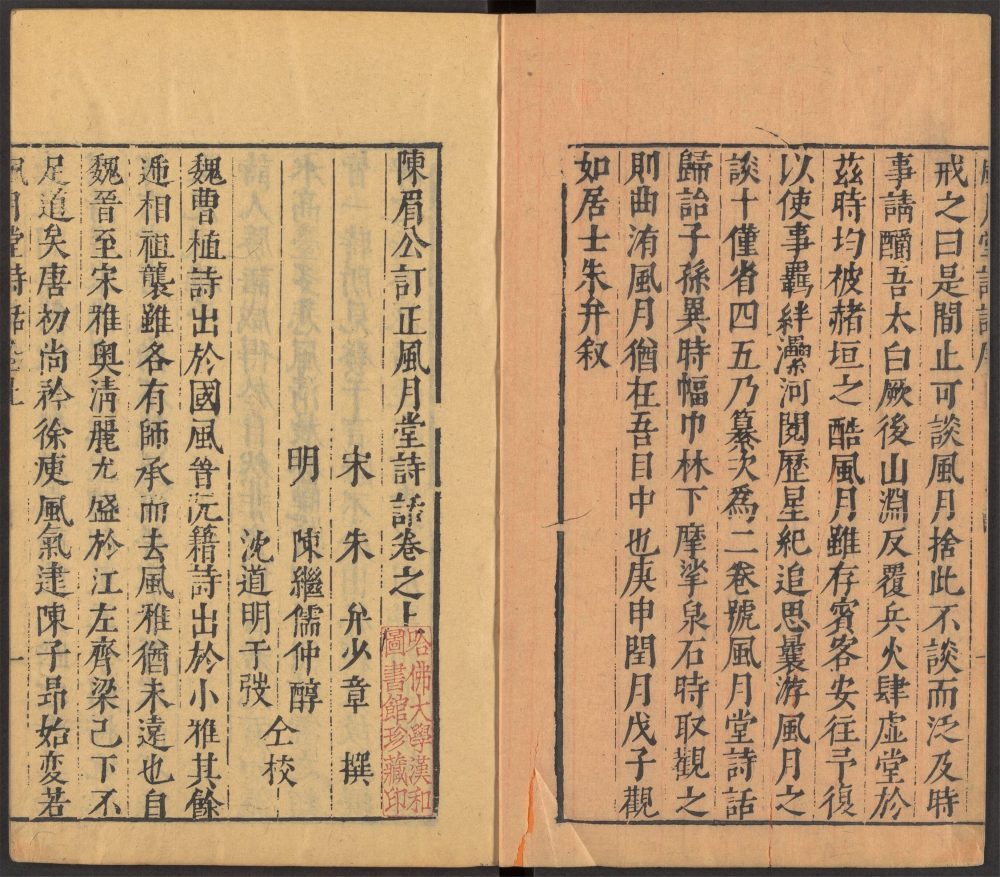 戒之曰是間止可談風月捨此不談而泛及時
事請釂吾太白厥後山淵反覆兵火肆虐堂於
茲時均被赭垣之酷風月雖存賓客安往予復
以使事羈絆灅河閱歷星紀追思曩游風月之
談十僅省四五乃纂次為二卷號風月堂詩話
歸詒子孫異時幅巾林下摩挲泉石時取觀之
則曲洧風月猶在吾目中也庚申閏月戊子觀
如居士朱弁叙
陳眉公訂正風月堂詩話卷之上
宋 朱 弁少章 撰
明 陳繼儒仲醇
沈道明于弢 仝校
哈佛大學漢和
圖書館珍藏印
魏曹植詩出於國風晉沅籍詩出於小雅其餘
遞相祖襲雖各有師承而去風雅猶未遠也自
魏晉至宋雅奧清麗尤盛於江左齊梁已下不
足道矣唐初尚矜徐庾風氣逮陳子昂始変若
風月堂詩話卷上 一